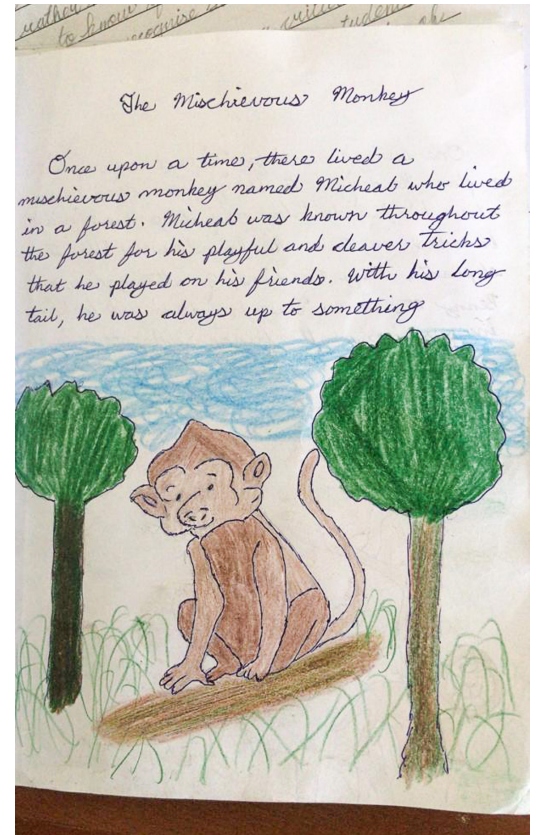 The Mischievous Monkey
Once upon a time, there lived a
mischievous monkey named Micheal who lived
in a forest. Micheal was known throughout
the forest for his playful and cleaver tricks
that he played on his friends. With his long
tail, he was always up to something